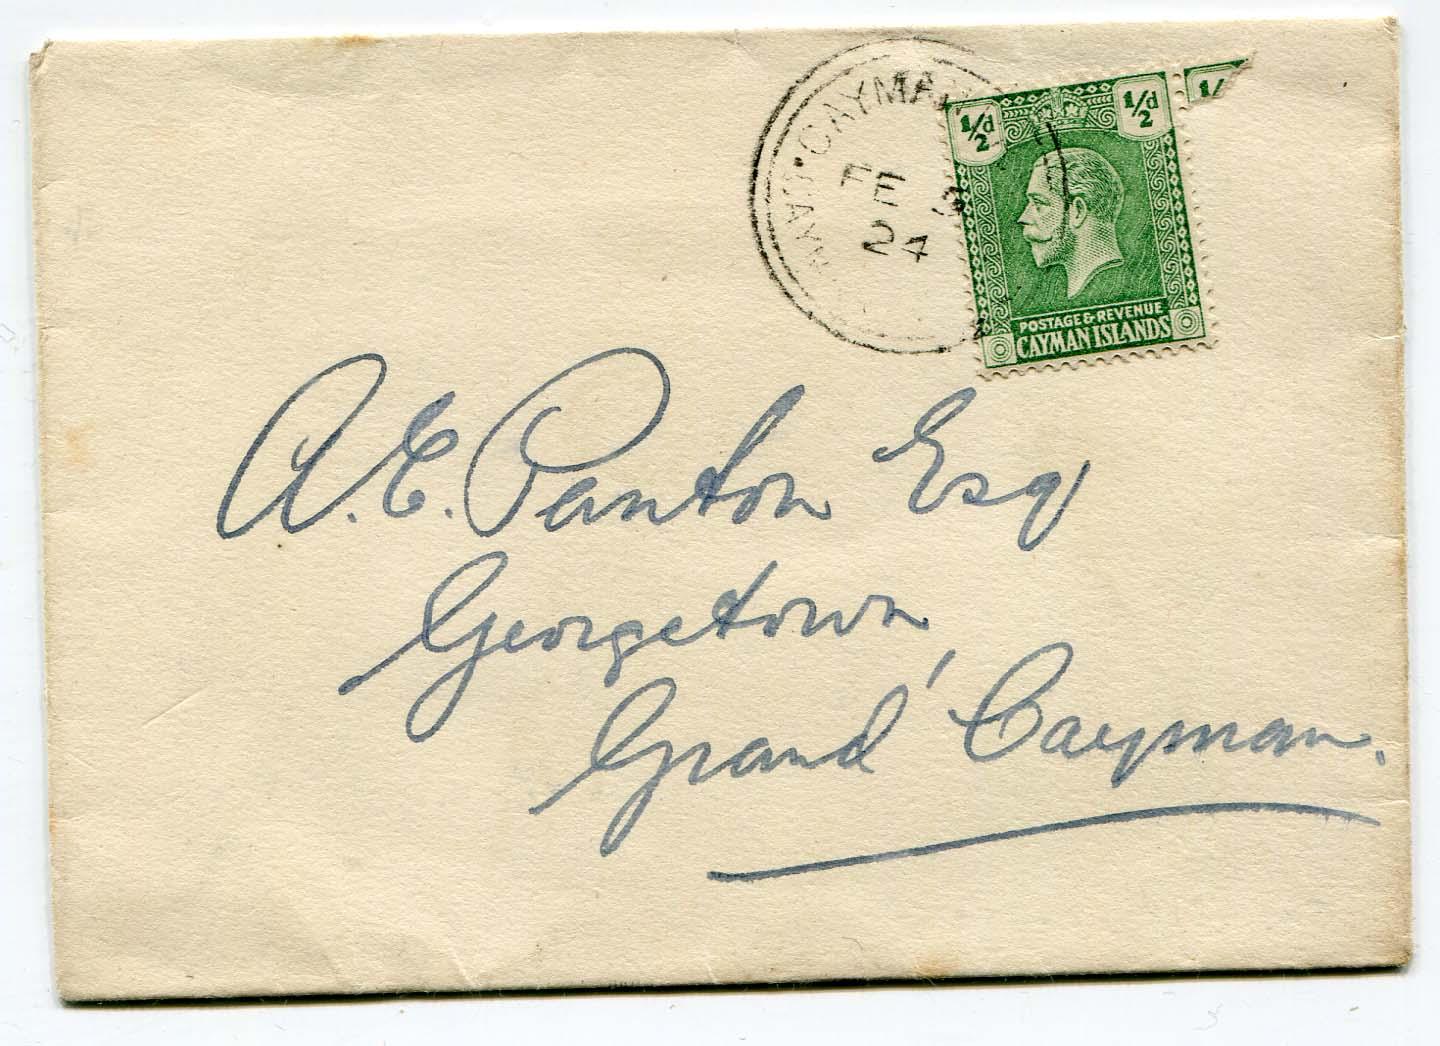 CAYMAN
FE 3
24
1/2d 1/2d 1/
POSTAGE & REVENUE
CAYMAN ISLANDS
A. E. Panton Esq
Georgetown,
Grand Cayman.